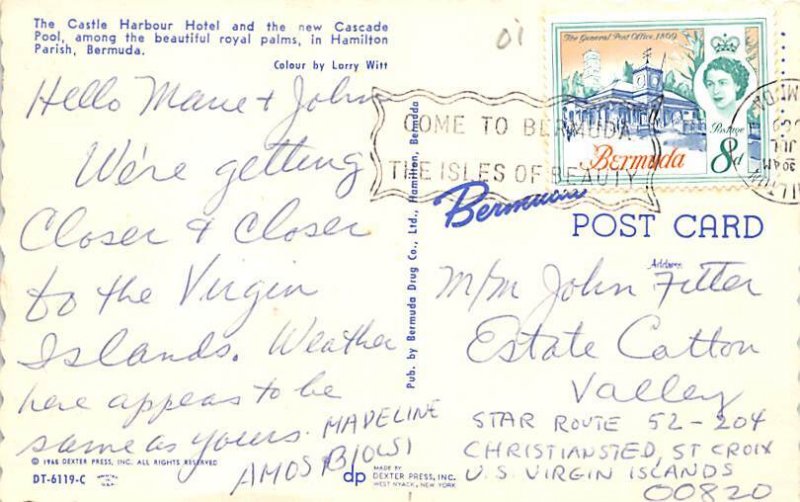 The Castle Harbour Hotel and the new Cascade
Pool, among the beautiful royal palms, in Hamilton
Parish, Bermuda.
Colour by Larry Witt
Hello Marie + John
We're getting
Closer & Closer
to the Virgin
Islands. Weather
here appears to be
same as yours.
MADELINE
AMOS
© 1965 DEXTER PRESS, INC. ALL RIGHTS RESERVED
DT-6119-C
Pub. by Bermuda Drug Co., Ltd., Hamilton, Bermuda
dp
MADE BY
DEXTER PRESS, INC.
WEST NYACK, NEW YORK
01
The General Post Office, 1869
Postage
Bermuda
8d
COME TO BERMUDA
THE ISLES OF BEAUTY
30 AM
JUL
Bermuda
POST CARD
Address
M/M John Fitter
Estate Catton
Valley
STAR ROUTE 52-204
CHRISTIANSTED, ST CROIX
U.S. VIRGIN ISLANDS
00820